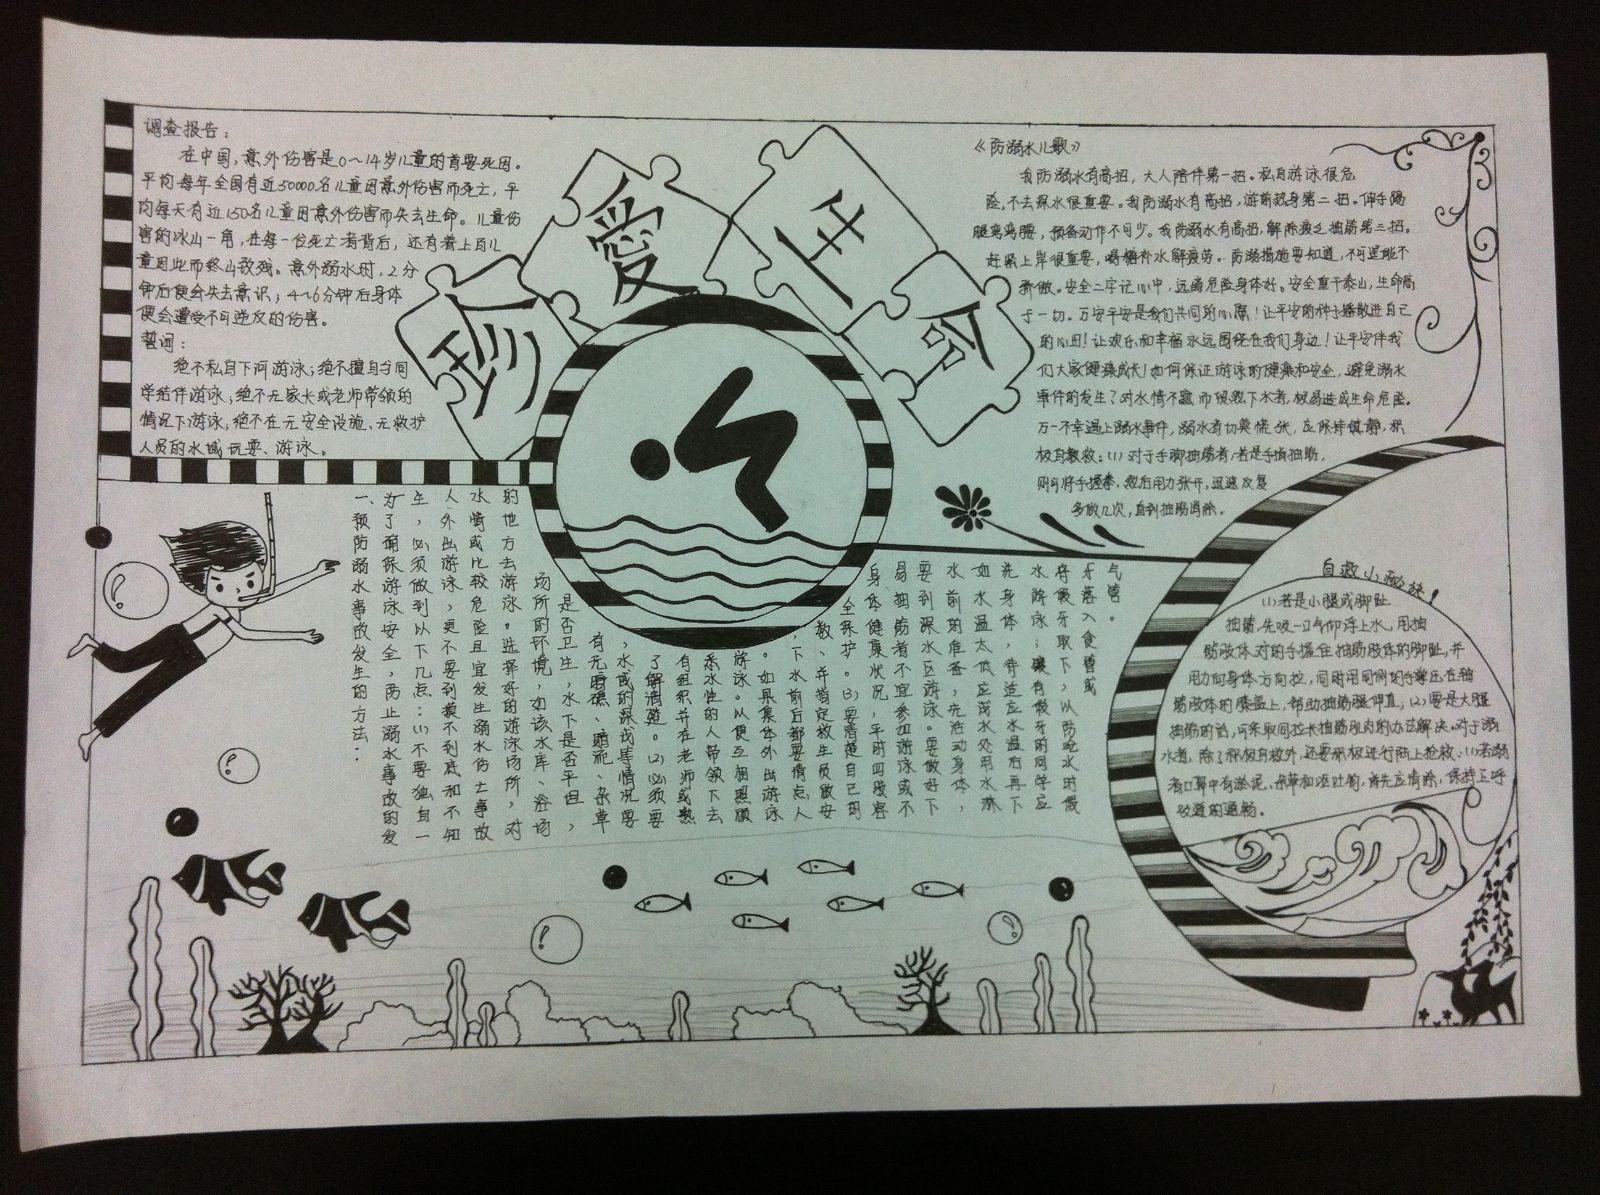 珍爱生命
调查报告：
在中国，意外伤害是0～14岁儿童的首要死因。
平均每年全国有近50000名儿童因意外伤害而死亡，平
均每天有近150名儿童因意外伤害而失去生命。儿童伤
害的冰山一角，在每一位死亡者背后，还有着上百儿
童因此而终山致残。意外溺水时，2分
钟后便会失去意识；4～6分钟后身体
便会遭受不可逆反的伤害。
誓词：
绝不私自下河游泳；绝不擅自与同
学结伴游泳；绝不无家长或老师带领的
情况下游泳；绝不在无安全设施、无救护
人员的水域玩耍、游泳。
《防溺水儿歌》
我防溺水有高招，大人陪伴第一招。私自游泳很危
险，不去深水很重要。我防溺水有高招，游前热身第二招。伸手踢
腿弯弯腰，预备动作不可少。我防溺水有高招，解除疲乏抽筋第三招。
赶紧上岸很重要，喝糖补水解疲劳。防溺措施要知道，不可逞能不
骄傲。安全二字记心中，远离危险身体好。安全重于泰山，生命高
于一切。万安平安是我们共同的心愿！让平安的种子播散进自己
的心田！让欢乐和幸福永远围绕在我们身边！让平安伴我
们大家健康成长！如何保证游泳的健康和安全，避免溺水
事件的发生？对水情不熟而贸然下水者，极易造成生命危险。
万一不幸遇上溺水事件，溺水者切莫慌张，应保持镇静，积
极自救：(1)对于手脚抽筋者，若是手指抽筋，
则可将手握拳，然后用力张开，迅速反复
多做几次，直到抽筋消除。
一、预防溺水事故发生的方法：
为了确保游泳安全，防止溺水事故的发
生，必须做到以下几点：(1)不要独自一
人外出游泳，更不要到摸不到底和不知
水情或比较危险且宜发生溺水伤亡事故
的地方去游泳。选择好的游泳场所，对
场所的环境，如该水库、浴场
是否卫生，水下是否平坦，
有无暗礁、暗流、杂草
，水域的深浅等情况要
了解清楚。(2)必须要
有组织并在老师或熟
悉水性的人带领下去
游泳。以便互相照顾
。如果集体外出游泳
，下水前后都要清点人
数、并指定救生员做安
全保护。(3)要清楚自己的
身体健康状况，平时四肢容
易抽筋者不宜参加游泳或不
要到深水区游泳。要做好下
水前的准备，先活动身体，
如水温太低应浅水处用水淋
洗身体，待适应水温后再下
水游泳；镶有假牙的同学应
将假牙取下，以防呛水时假
牙落入食管或
气管。
自救小秘诀！
(1)若是小腿或脚趾
抽筋，先吸一口气仰浮上水，用抽
筋肢体对的手握住抽筋肢体的脚趾，并
用力向身体方向拉，同时用同侧的手掌压在抽
筋肢体的膝盖上，帮助抽筋腿伸直；(2)要是大腿
抽筋的话，可采取同拉长抽筋肌肉的办法解决。对于溺
水者，除了积极自救外，还要积极进行陆上抢救：(1)若溺
者口鼻中有淤泥、杂草和呕吐物，首先应清除，保持上呼
吸道的通畅。